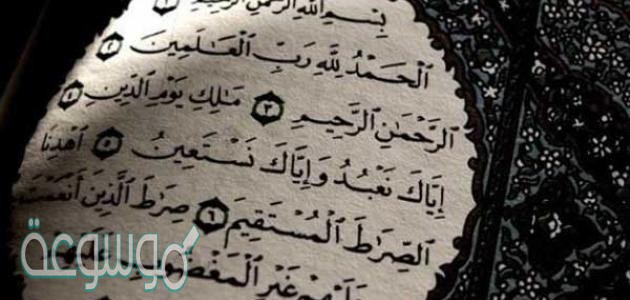 بِسْمِ ٱللَّهِ ٱلرَّحْمَٰنِ ٱلرَّحِيمِ ١
ٱلْحَمْدُ لِلَّهِ رَبِّ ٱلْعَٰلَمِينَ ٢
ٱلرَّحْمَٰنِ ٱلرَّحِيمِ ٣ مَٰلِكِ يَوْمِ ٱلدِّينِ ٤
إِيَّاكَ نَعْبُدُ وَإِيَّاكَ نَسْتَعِينُ ٥ ٱهْدِنَا
ٱلصِّرَٰطَ ٱلْمُسْتَقِيمَ ٦ صِرَٰطَ ٱلَّذِينَ أَنْعَمْتَ
عَلَيْهِمْ غَيْرِ ٱلْمَغْضُوبِ عَلَيْهِمْ
موسوعة